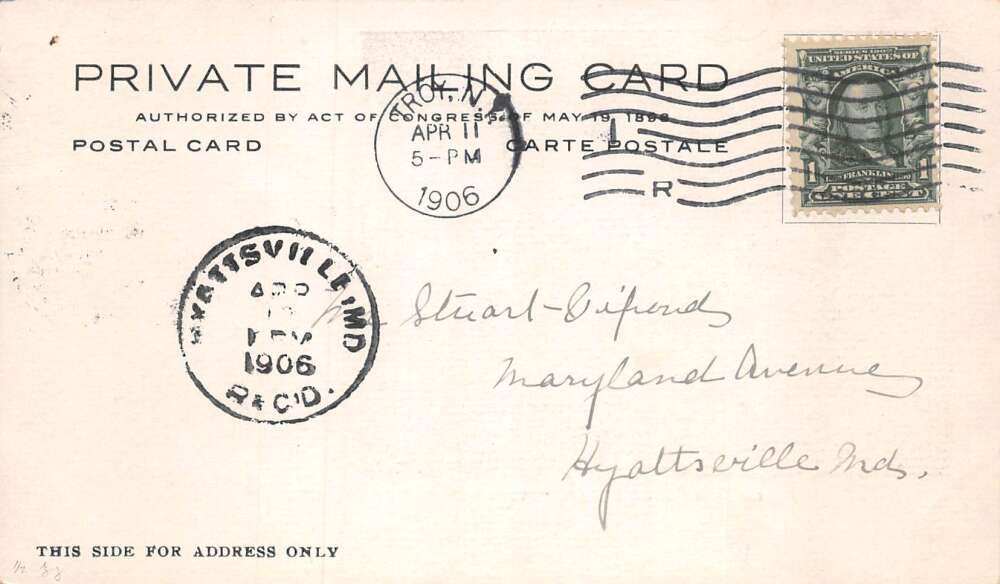 PRIVATE MAILING CARD
AUTHORIZED BY ACT OF CONGRESS OF MAY 19, 1898
POSTAL CARD CARTE POSTALE
TROY, N.Y.
APR 11
5-PM
1906
L
R
SERIES 1902
UNITED STATES OF
AMERICA
1 FRANKLIN 1
POSTAGE
ONE CENT
HYATTSVILLE, MD
APR
PM
1906
REC'D.
Stuart
Maryland Avenue
Hyattsville Md.
THIS SIDE FOR ADDRESS ONLY